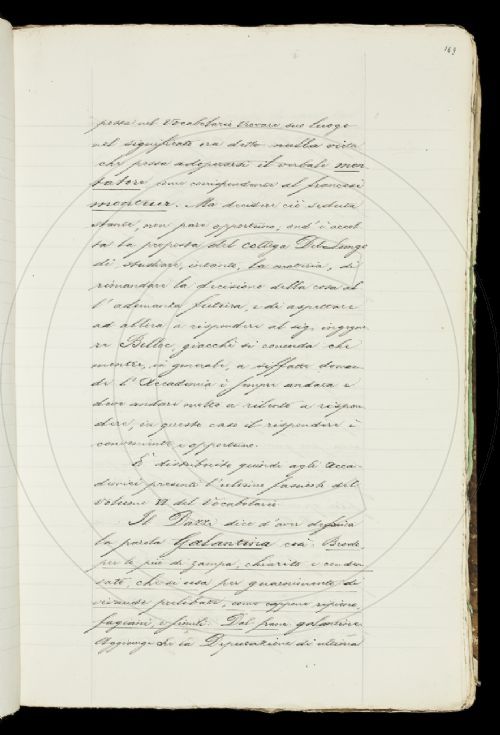 169
possa nel Vocabolario trovare suo luogo
nel significato ora detto nulla vieta
che possa adoperarsi il verbale mon
tatore come corrispondente al francese
monteur. Ma decidere ciò seduta
stante, non pare opportuno, ond'è accet
ta la proposta del collega Del Lungo
di studiare, intanto, la materia, di
rimandare la decisione della cosa al
l'adunanza futura, e di aspettare
ad allora a rispondere al sig. ingegne
re Belloc, giacchè si convenga che
mentre, in generale, a siffatte doman
de l'Accademia è sempre andata e
deve andare molto a rilento a rispon
dere, in questo caso il rispondere è
conveniente e opportuno.
È distribuito quindi agli Acca
demici presenti l'ultimo fascicolo del
Volume VI del Vocabolario.
Il Dazzi dice d'aver definita
la parola Galantina così: Brodo
per lo più di zampa, chiarito e conden
sato, che si usa per guarnimento di
vivande prelibate, come capponi ripieni,
fagiani, e simili. Dal franc. galantine
Aggiunge che la Deputazione di ultima